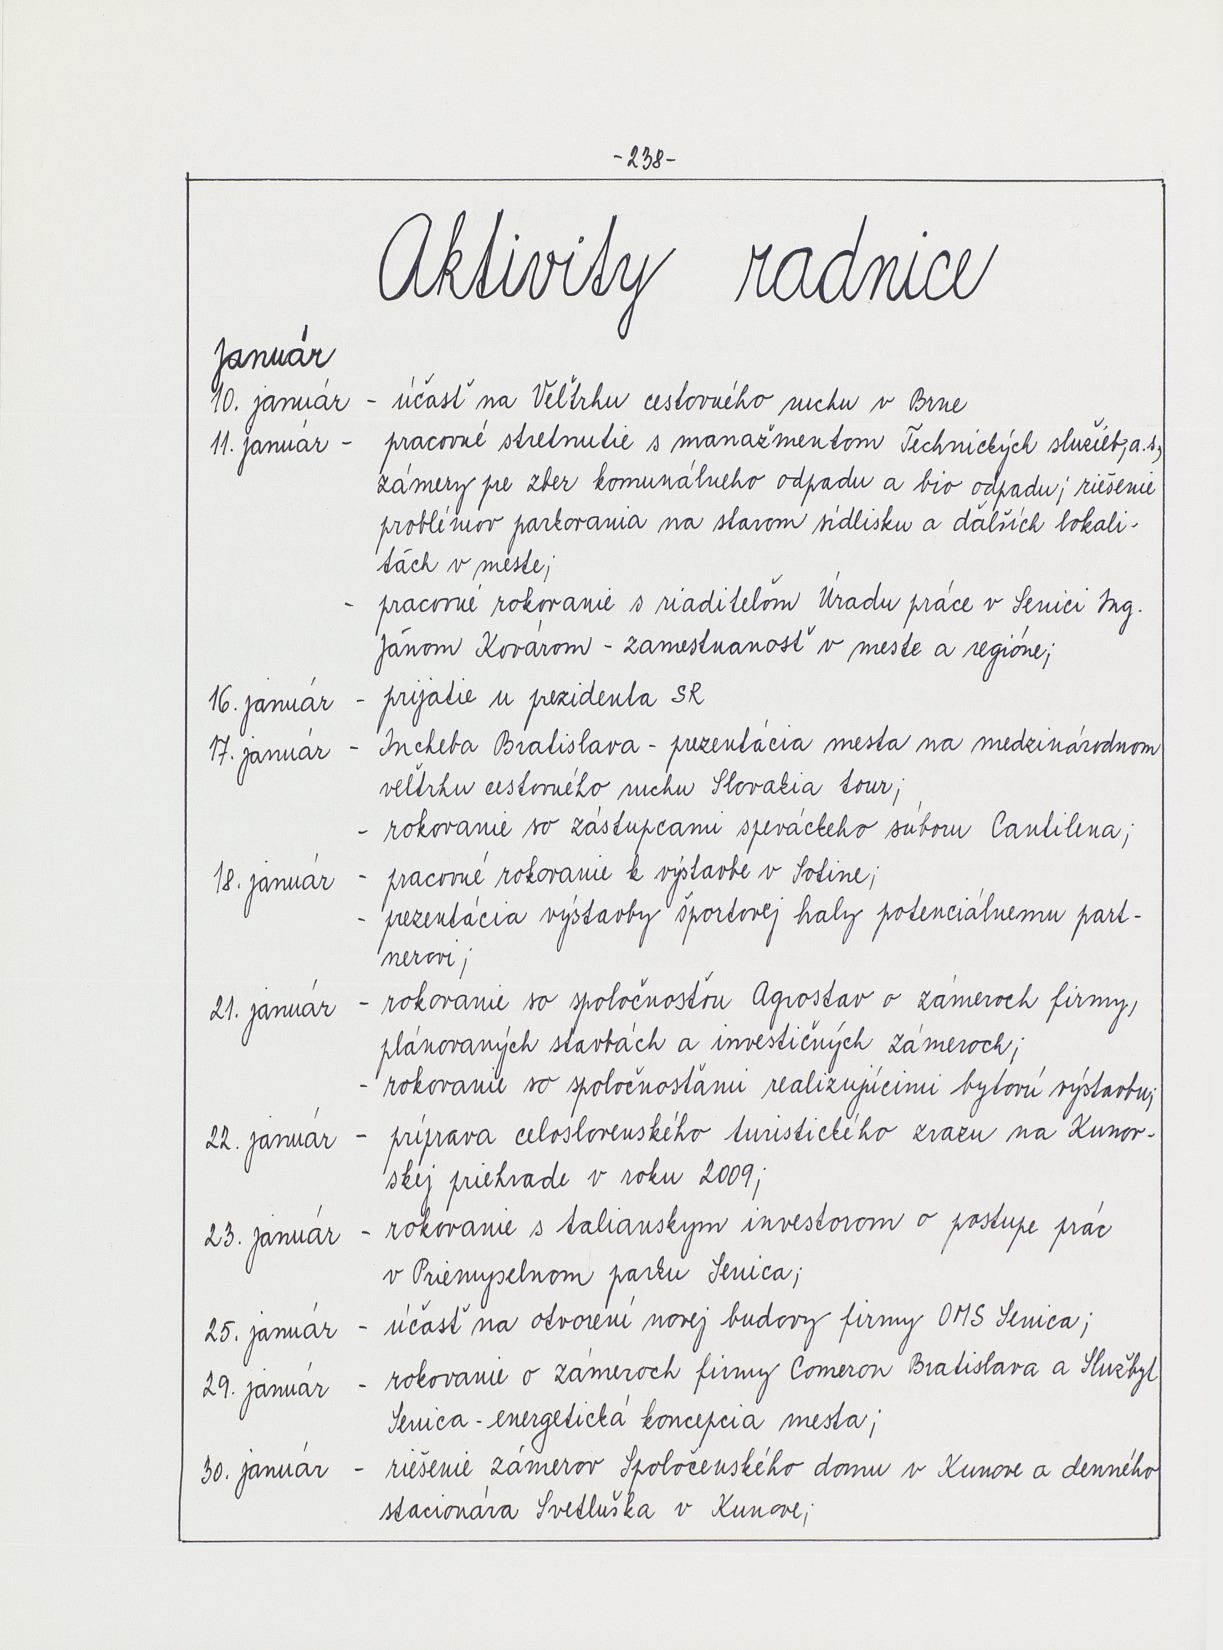 -238-
Aktivity radnice
Január
10. január - účasť na Veľtrhu cestovného ruchu v Brne
11. január - pracovné stretnutie s manažmentom Technických služieb, a.s,
zámery pre zber komunálneho odpadu a bio odpadu; riešenie
problémov parkovania na starom sídlisku a ďalších lokali-
tách v meste;
- pracovné rokovanie s riaditeľom Úradu práce v Senici Ing.
Jánom Kovárom - zamestnanosť v meste a regióne;
16. január - prijatie u prezidenta SR
17. január - Incheba Bratislava - prezentácia mesta na medzinárodnom
veľtrhu cestovného ruchu Slovakia tour;
- rokovanie so zástupcami speváckeho súboru Cantilena;
18. január - pracovné rokovanie k výstavbe v Sotine;
- prezentácia výstavby športovej haly potenciálnemu part-
nerovi;
21. január - rokovanie so spoločnosťou Agrostav o zámeroch firmy,
plánovaných stavbách a investičných zámeroch;
- rokovanie so spoločnosťami realizujúcimi bytovú výstavbu;
22. január - príprava celoslovenského turistického zrazu na Kunov-
skej priehrade v roku 2009;
23. január - rokovanie s talianskym investorom o postupe prác
v Priemyselnom parku Senica;
25. január - účasť na otvorení novej budovy firmy OMS Senica;
29. január - rokovanie o zámeroch firmy Comeron Bratislava a Službyt
Senica - energetická koncepcia mesta;
30. január - riešenie zámerov Spoločenského domu v Kunove a denného
stacionára Svetluška v Kunove;